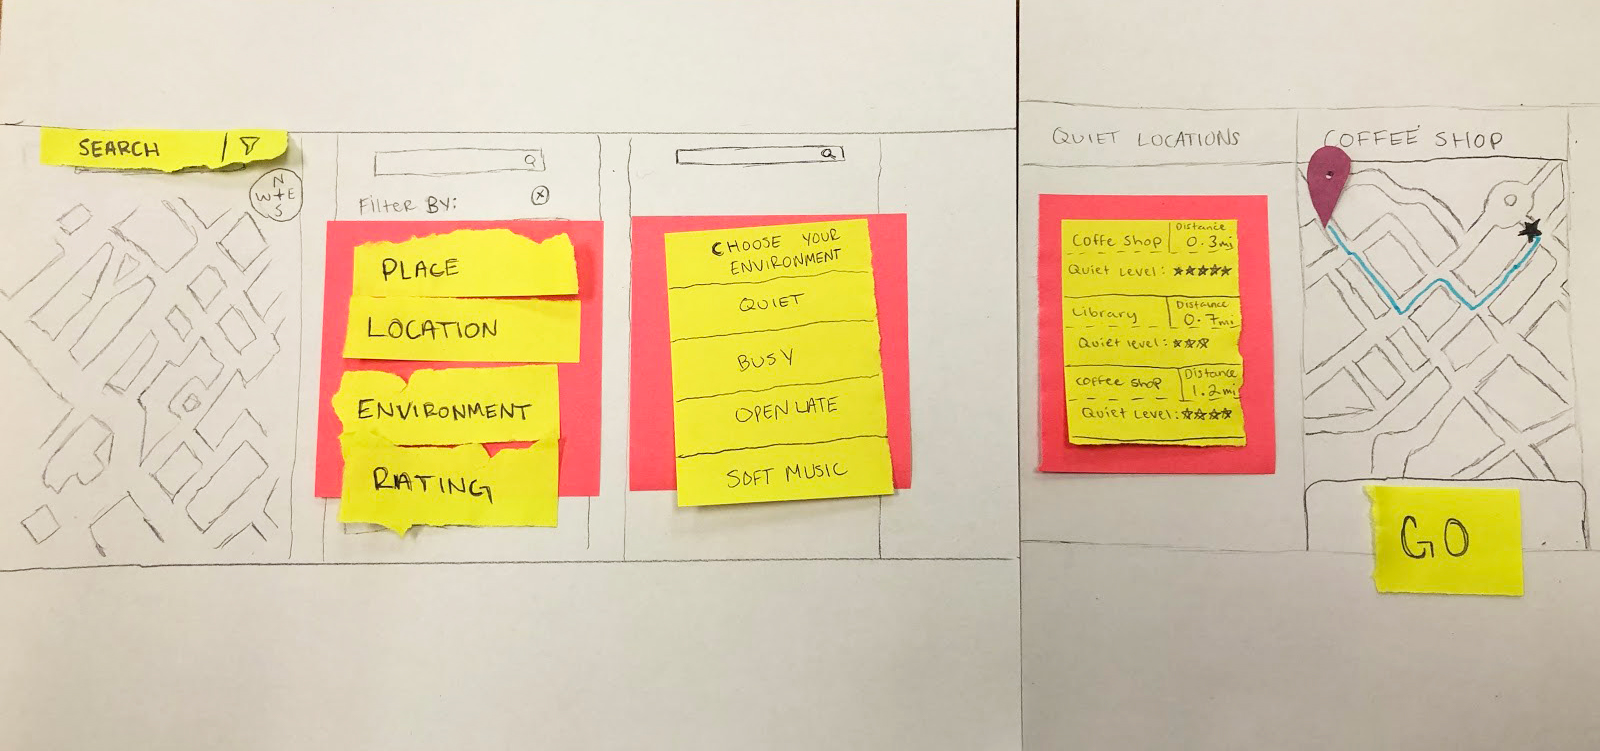 SEARCH
N
W+E
S
Filter By:
X
PLACE
LOCATION
ENVIRONMENT
RATING
CHOOSE YOUR
ENVIRONMENT
QUIET
BUSY
OPEN LATE
SOFT MUSIC
QUIET LOCATIONS
Coffe Shop
Distance
0.3mi
Quiet Level: ★★★★★
Library
Distance
0.7mi
Quiet level: ★★★
coffee shop
Distance
1.2mi
Quiet Level: ★★★★
COFFEE SHOP
GO